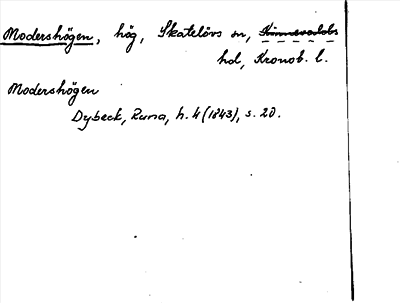 Modershögen, hög, Skatelövs sn, Kinnevalds
hd, Kronob. l.
Modershögen
Dybeck, Runa, h. 4 (1843), s. 20.